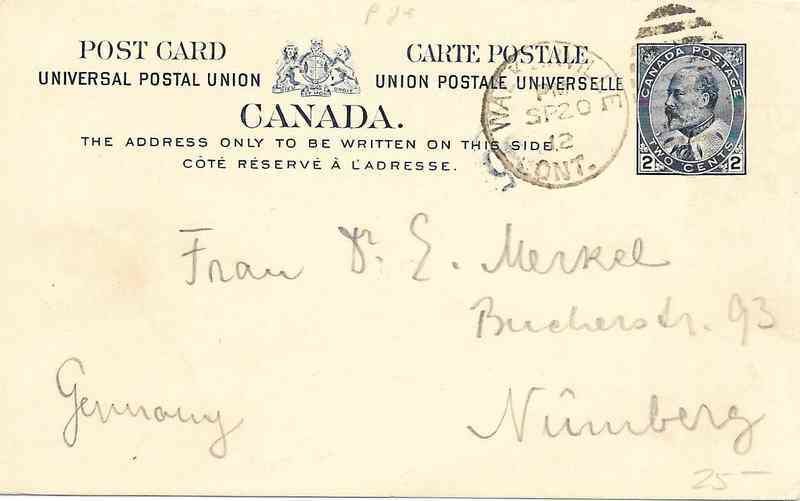 POST CARD
CARTE POSTALE
UNIVERSAL POSTAL UNION
UNION POSTALE UNIVERSELLE
CANADA.
THE ADDRESS ONLY TO BE WRITTEN ON THIS SIDE.
CÔTÉ RÉSERVÉ À L'ADRESSE.
PM
SP 20
12
ONT.
CANADA POSTAGE
2 TWO CENTS 2
Frau Dr. E. Merkel
Bucherstr. 93
Nürnberg
Germany
25-